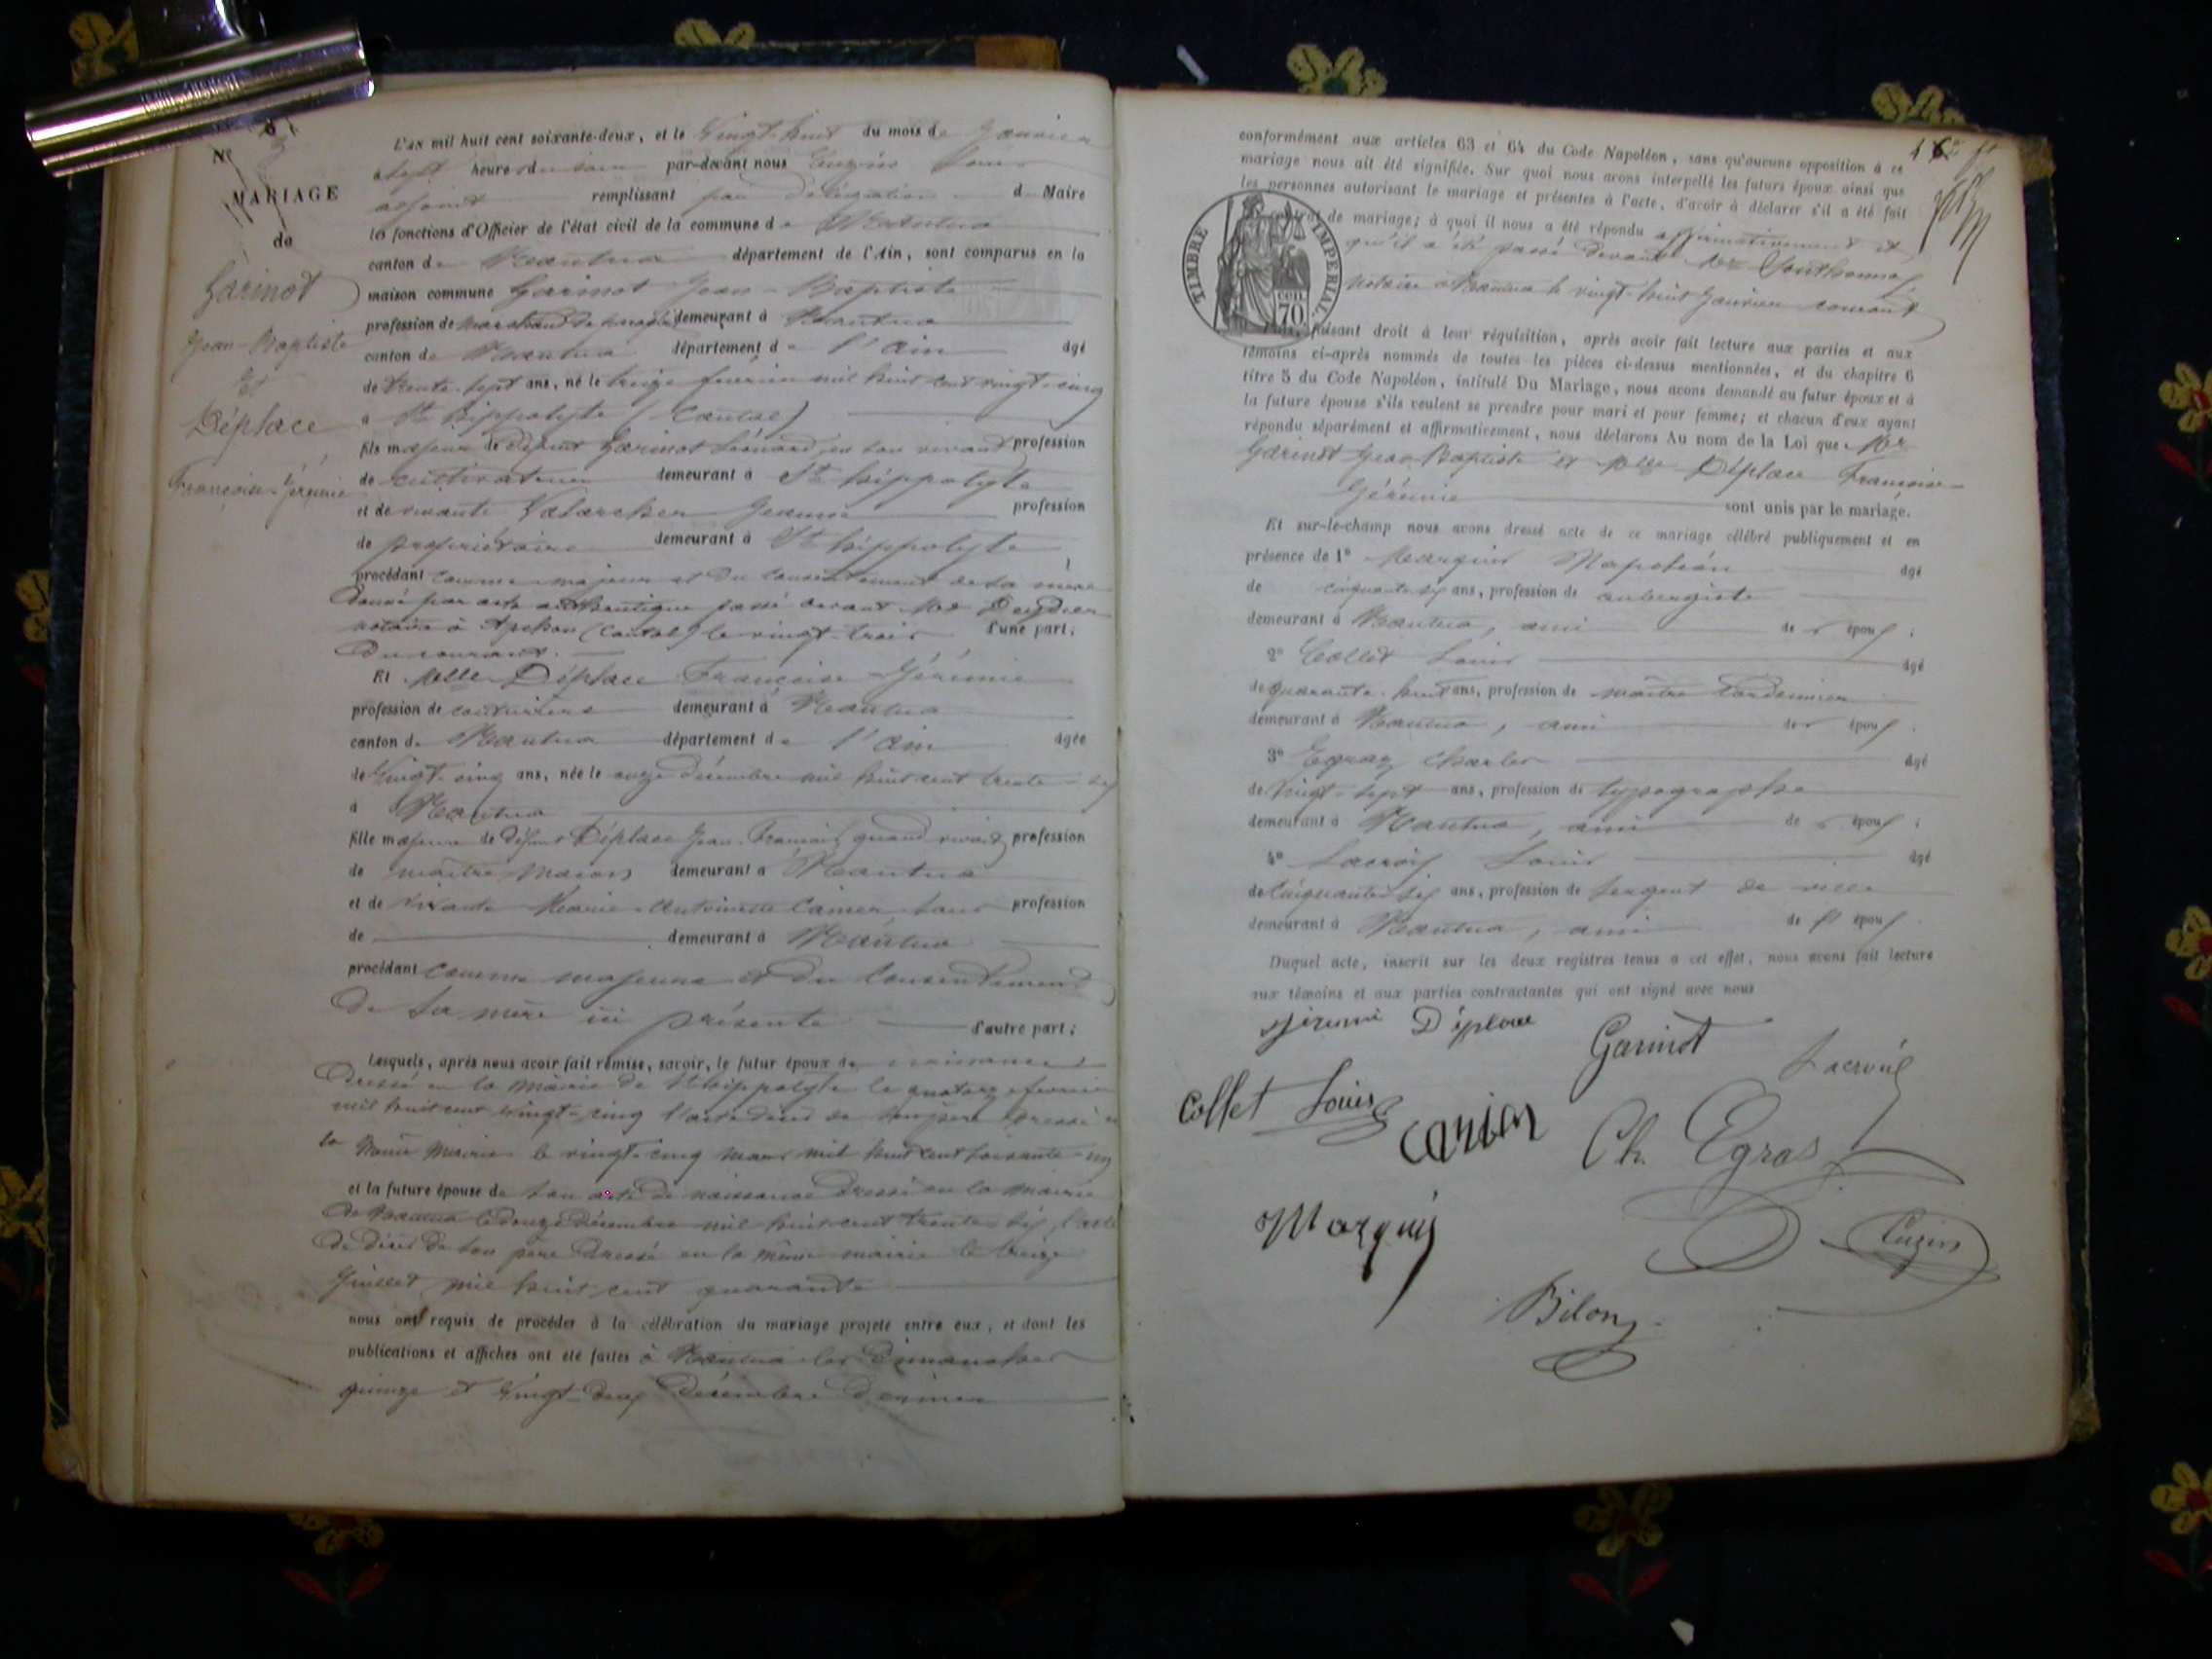 Nº
MARIAGE
de
Garinot
Jean-Baptiste
Et
Déplace
Françoise-Jérémie
L'an mil huit cent soixante-deux, et le Vingt-huit du mois de Janvier
à sept heures du soir par-devant nous Cuzin Louis
adjoint remplissant par délégation du Maire
les fonctions d'Officier de l'état civil de la commune de Nantua
canton de Nantua département de l'Ain, sont comparus en la
maison commune Garinot Jean-Baptiste
profession de marchand de demeurant à Nantua
canton de Nantua département de l'Ain âgé
de trente-sept ans, né le treize février mil huit cent vingt-cinq
à St hippolyte (Cantal)
fils majeur de défunt Garinot Léonard, en son vivant profession
de cultivateur demeurant à St hippolyte
et de vivante Jeanne profession
de propriétaire demeurant à St hippolyte
procédant comme majeur et du consentement de sa mère
donné par acte authentique passé devant Me Deydier
notaire à Apchon (Cantal) le vingt-trois d'une part;
du courant.
Et Melle Déplace Françoise-Jérémie
profession de couturière demeurant à Nantua
canton de Nantua département de l'Ain âgée
de Vingt-cinq ans, née le onze décembre mil huit cent trente-six
à Nantua
fille majeure de défunt Déplace Jean-François, quand vivait profession
de maître maçon demeurant à Nantua
et de vivante Marie-Antoinette Carrier, sans profession
de demeurant à Nantua
procédant comme majeure et du consentement
de sa mère ici présente d'autre part;
Lesquels, après nous avoir fait remise, savoir, le futur époux de naissance
dressé en la mairie de St hippolyte le quatorze février
mil huit cent vingt-cinq l'acte décès de son père dressé en
la même mairie le vingt-cinq mars mil huit cent soixante-un
et la future épouse de son acte de naissance dressé en la mairie
de Nantua le douze décembre mil huit cent trente-six, l'acte
de décès de son père dressé en la même mairie le treize
Juillet mil huit cent quarante
nous ont requis de procéder à la célébration du mariage projeté entre eux, et dont les
publications et affiches ont été faites à Nantua les Dimanches
quinze et vingt-deux décembre dernier
conformément aux articles 63 et 64 du Code Napoléon, sans qu'aucune opposition à ce
mariage nous ait été signifiée. Sur quoi nous avons interpellé les futurs époux ainsi que
les personnes autorisant le mariage et présentes à l'acte, d'avoir à déclarer s'il a été fait
contrat de mariage; à quoi il nous a été répondu affirmativement et
qu'il a été passé devant Me
notaire à Nantua le vingt-huit Janvier courant
TIMBRE IMPERIAL
CEN. 70.
faisant droit à leur réquisition, après avoir fait lecture aux parties et aux
témoins ci-après nommés de toutes les pièces ci-dessus mentionnées, et du chapitre 6
titre 5 du Code Napoléon, intitulé Du Mariage, nous avons demandé au futur époux et à
la future épouse s'ils veulent se prendre pour mari et pour femme; et chacun d'eux ayant
répondu séparément et affirmativement, nous déclarons Au nom de la Loi que Mr
Garinot Jean-Baptiste et Melle Déplace Françoise-
Jérémie sont unis par le mariage.
Et sur-le-champ nous avons dressé acte de ce mariage célébré publiquement et en
présence de 1º Marquis Napoléon âgé
de cinquante-six ans, profession de aubergiste
demeurant à Nantua, ami des époux;
2º Collet Louis âgé
de quarante-huit ans, profession de maître cordonnier
demeurant à Nantua, ami des époux;
3º Egraz Charles âgé
de vingt-sept ans, profession de typographe
demeurant à Nantua, ami des époux;
4º Lacroix Louis âgé
de Cinquante-six ans, profession de sergent de ville
demeurant à Nantua, ami des époux
Duquel acte, inscrit sur les deux registres tenus à cet effet, nous avons fait lecture
aux témoins et aux parties contractantes qui ont signé avec nous
jérémi Déplace Garinot Lacroix
Collet Louis Carier Ch. Egras
Marquis Cuzin
Bilon